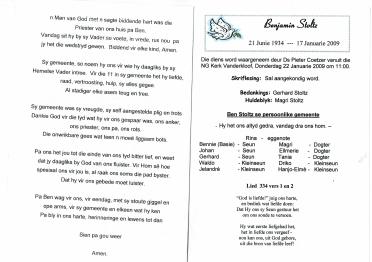 n Man van God met n segie biddende hart was die
Priester van ons huis pa Ben.
Vandag sit hy by sy Vader so voete, in vrede, rus nou pa
jy het die wedstryd gewen. Biddend vir elke kind, Amen.
Sy gemeente, so noem hy ons dat wie hy daagliks by sy
Hemelse Vader intree. Vir die 11 in sy gemeente het hy liefde,
raad, vertroosting, hulp, sy alles gegee
Al stadiger elke asem teug en tree.
Sy gemeente was sy vreugde, sy self aangestelde plig en trots
Dankie God vir die tyd wat hy vir ons gespaar was, ons anker,
ons priester, ons pa, ons rots.
Die onwrikbare gees wat leen n moeë liggaam bots.
Pa ons het jou tot die einde van ons tyd bitter lief, en weet
dat jy daagliks by God van ons fluister. Vir Hom sê hoe
spesiaal ons vir jou is, al raak ons soms die pad byster.
Dat hy vir ons gebede moet luister.
Pa Ben wag vir ons, vir eendag, met sy stoute giggel en
ope arms, vir sy gemeente en elkeen wat hy ken
Pa bly in ons harte, herinneringe en lewens tot dan
Sien pa gou weer
Amen.
Benjamin Stoltz
21 Junie 1934 --- 17 Januarie 2009
Die diens word waargeneem deur Ds Pieter Coetzer vanuit die
NG Kerk Vanderkloof, Donderdag 22 Januarie 2009 om 11:00.
Skriflesing: Sal aangekondig word.
Bedankings: Gerhard Stoltz
Huldeblyk: Magri Stoltz
Ben Stoltz se persoonlike gemeente
- Hy het ons altyd gedra, vandag dra ons hom. –
Rina - eggenote
Bennie (Basie) - Seun Magri - Dogter
Johan - Seun Ellmerie - Dogter
Gerhard - Seun Tania - Dogter
Waldo - Kleinseun Driko - Kleinseun
Jelandré - Kleinseun Hanjo-Elmé - Kleinseun
Lied 334 vers 1 en 2
"God is liefde!" juig ons harte,
en bedink wat liefde doen:
Dat Hy ons sy Seun gestuur het
om ons sonde te versoen.
Hy wat eerste liefgehad het,
het in liefde ons vergeef -
nou kan ons, uit God gebore,
uit die bron van liefde leef!